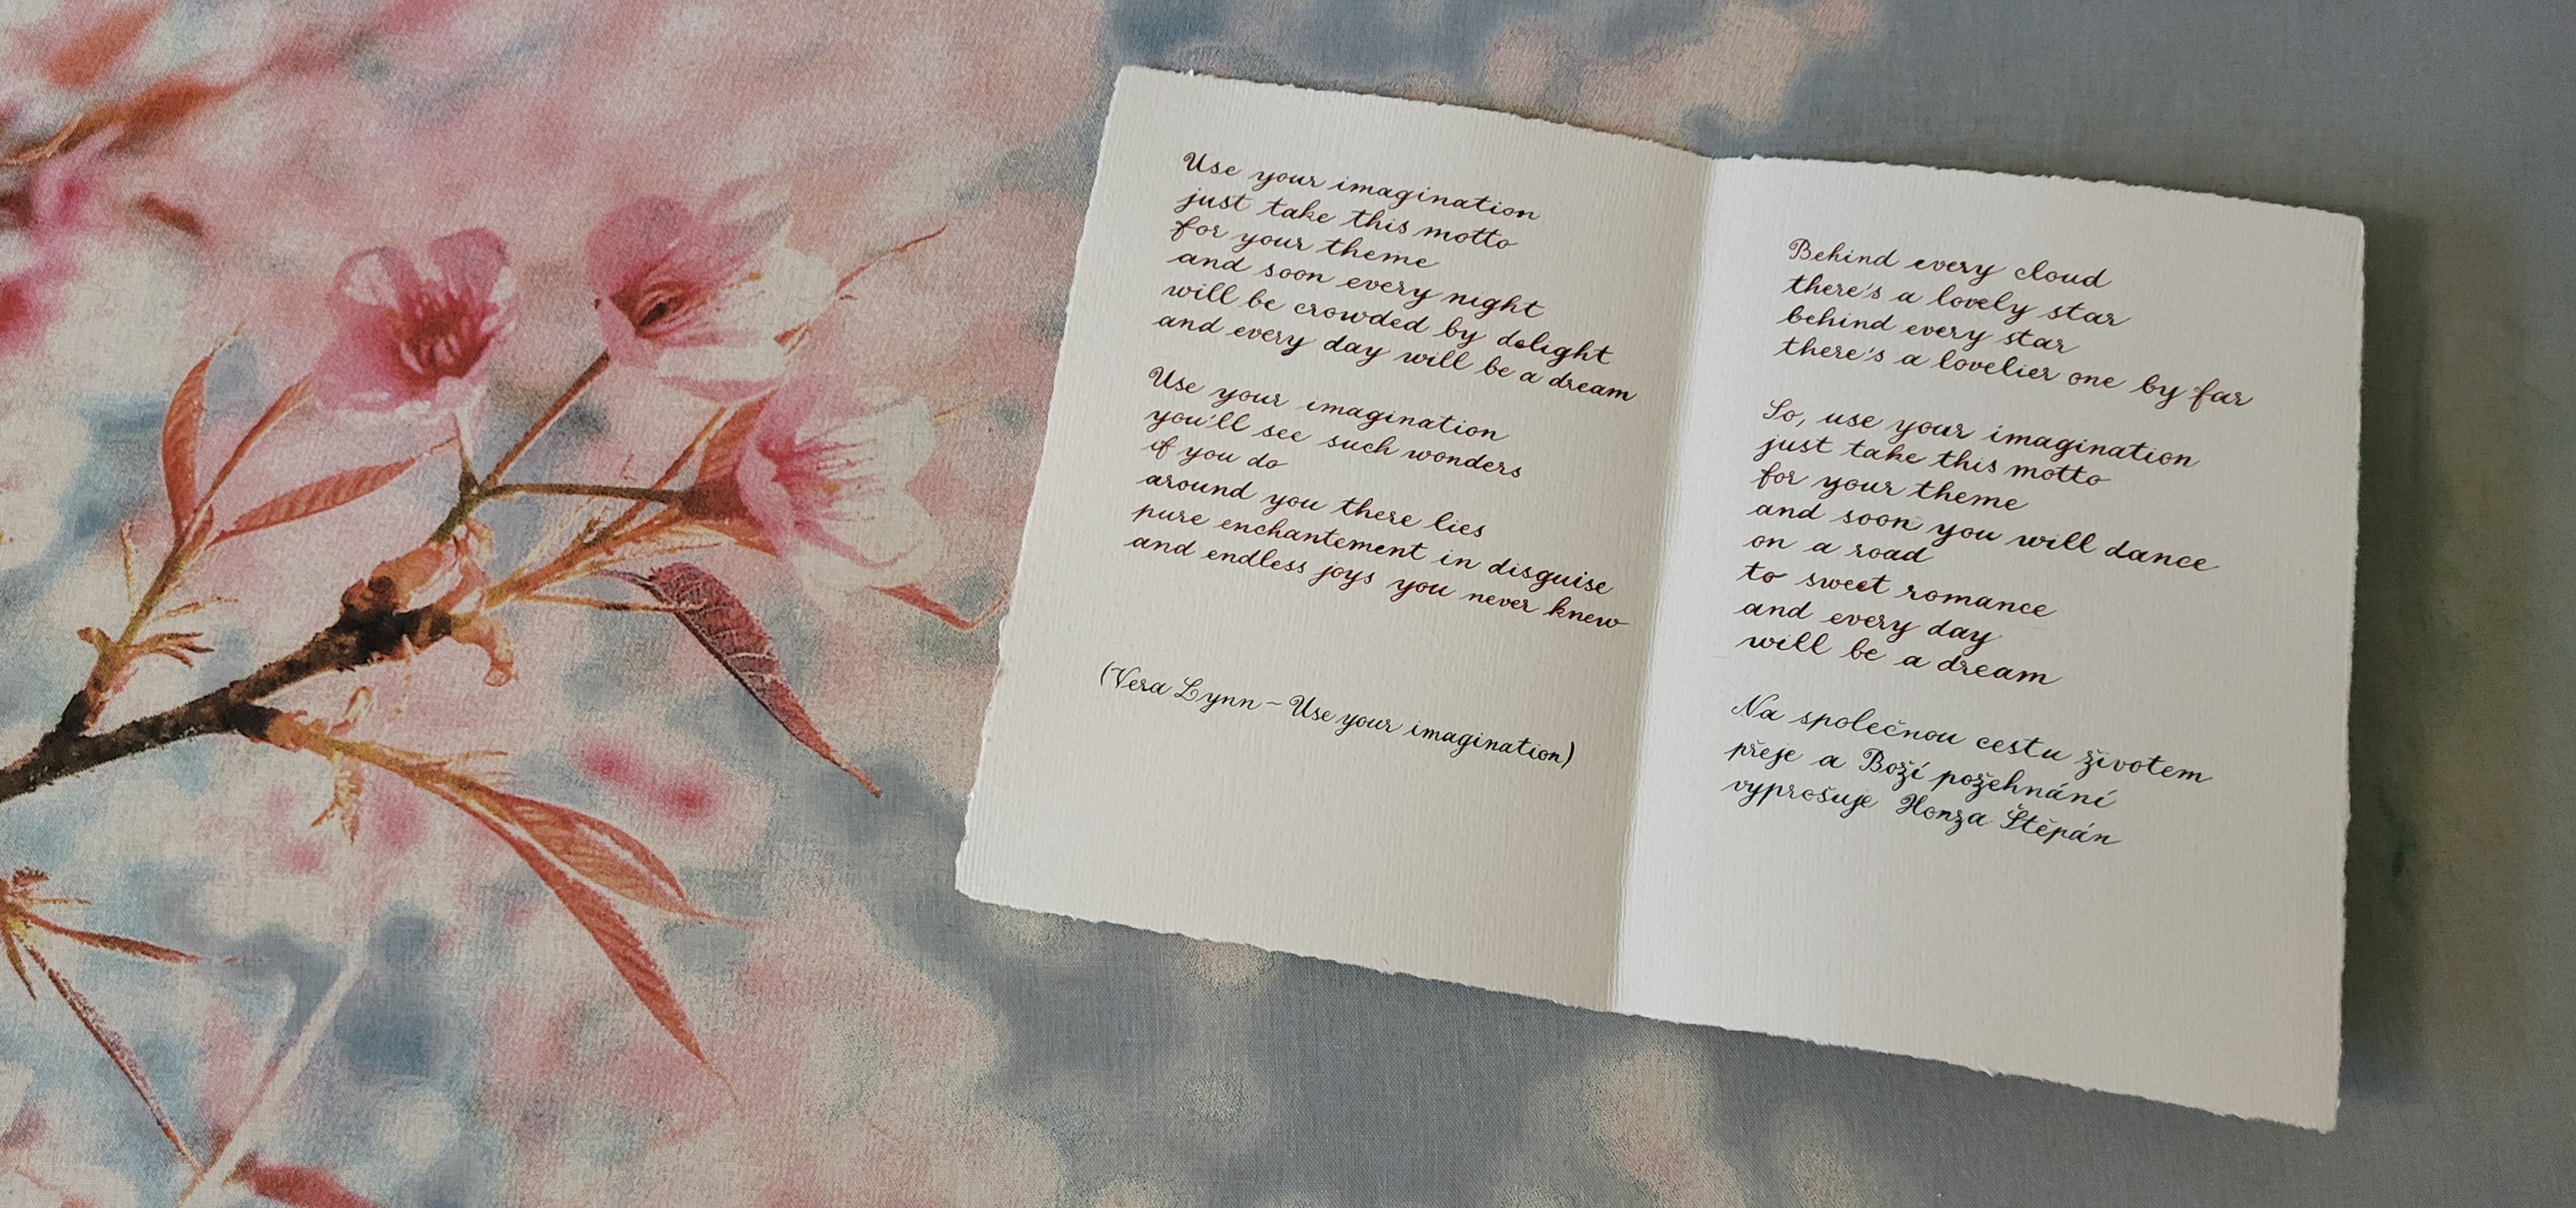 Use your imagination
just take this motto
for your theme
and soon every night
will be crowded by delight
and every day will be a dream
Use your imagination
you'll see such wonders
if you do
around you there lies
pure enchantement in disguise
and endless joys you never knew
(Vera Lynn - Use your imagination)
Behind every cloud
there's a lovely star
behind every star
there's a lovelier one by far
So, use your imagination
just take this motto
for your theme
and soon you will dance
on a road
to sweet romance
and every day
will be a dream
Na společnou cestu životem
přeje a Boží požehnání
vyprošuje Honza Štěpán